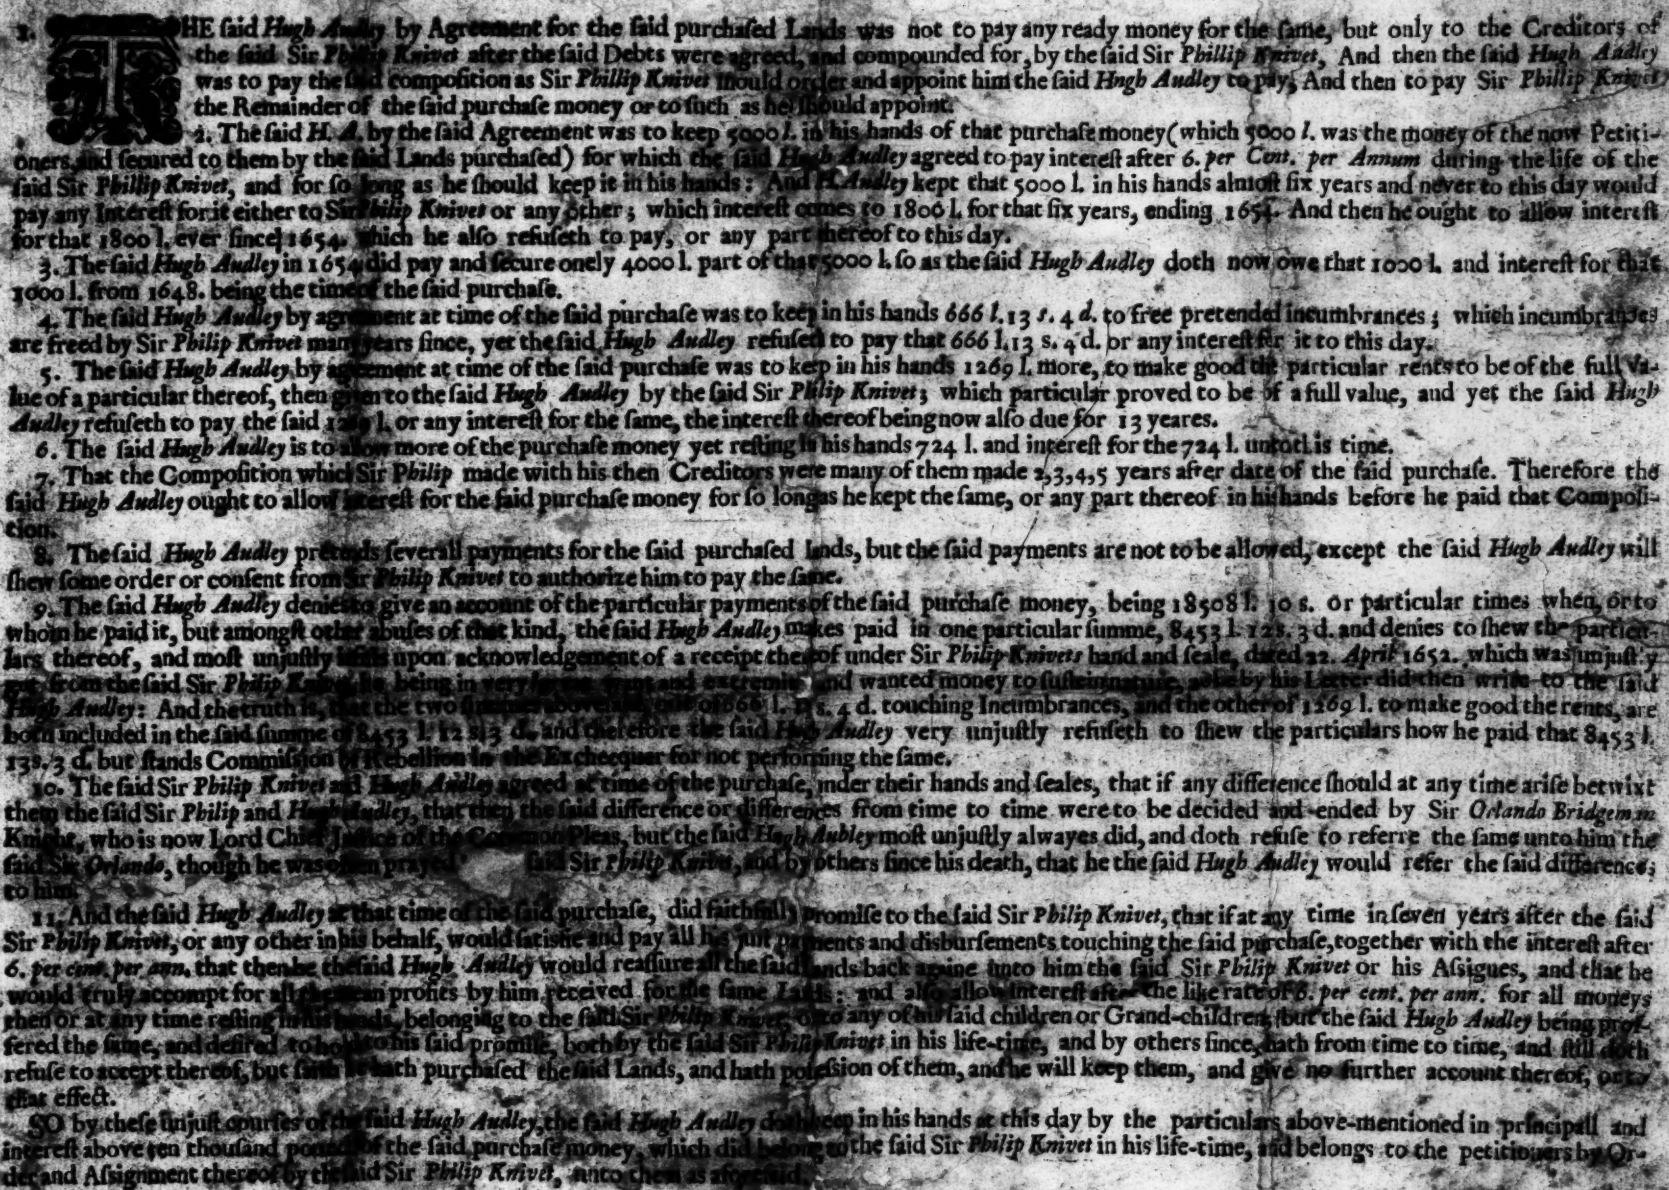 1. THE ſaid Hugh Audley by Agreement for the ſaid purchaſed Lands was not to pay any ready money for the ſame, but only to the Creditors of
the ſaid Sir Philip Knivet after the ſaid Debts were agreed, and compounded for, by the ſaid Sir Phillip Knivet, And then the ſaid Hugh Audley
was to pay the ſaid compoſition as Sir Phillip Knivet ſhould order and appoint him the ſaid Hngh Audley to pay; And then to pay Sir Phillip Knivet
the Remainder of the ſaid purchaſe money or to ſuch as he ſhould appoint.
2. The ſaid H. A. by the ſaid Agreement was to keep 5000 l. in his hands of that purchaſe money (which 5000 l. was the money of the now Petiti-
oners, and ſecured to them by the ſaid Lands purchaſed) for which the ſaid Hugh Audley agreed to pay intereſt after 6. per Cent. per Annum during the life of the
ſaid Sir Phillip Knivet, and for ſo long as he ſhould keep it in his hands: And H. Audley kept that 5000 l. in his hands almoſt ſix years and never to this day would
pay any Intereſt for it either to Sir Philip Knivet or any other; which intereſt comes to 1800 l. for that ſix years, ending 1654. And then he ought to allow intereſt
for that 1800 l. ever ſince 1654. which he alſo refuſeth to pay, or any part thereof to this day.
3. The ſaid Hugh Audley in 1654 did pay and ſecure onely 4000 l. part of that 5000 l. ſo as the ſaid Hugh Audley doth now owe that 1000 l. and intereſt for that
1000 l. from 1648. being the time of the ſaid purchaſe.
4. The ſaid Hugh Audley by agreement at time of the ſaid purchaſe was to keep in his hands 666 l. 13 s. 4 d. to free pretended incumbrances; which incumbrances
are freed by Sir Philip Knivet many years ſince, yet the ſaid Hugh Audley refuſeth to pay that 666 l. 13 s. 4 d. or any intereſt for it to this day.
5. The ſaid Hugh Audley by agreement at time of the ſaid purchaſe was to keep in his hands 1269 l. more, to make good the particular rents to be of the full va-
lue of a particular thereof, then given to the ſaid Hugh Audley by the ſaid Sir Philip Knivet; which particular proved to be of a full value, and yet the ſaid Hugh
Audley refuſeth to pay the ſaid 1269 l. or any intereſt for the ſame, the intereſt thereof being now alſo due for 13 yeares.
6. The ſaid Hugh Audley is to allow more of the purchaſe money yet reſting in his hands 724 l. and intereſt for the 724 l. unto this time.
7. That the Compoſition which Sir Philip made with his then Creditors were many of them made 2,3,4,5 years after date of the ſaid purchaſe. Therefore the
ſaid Hugh Audley ought to allow intereſt for the ſaid purchaſe money for ſo long as he kept the ſame, or any part thereof in his hands before he paid that Compoſi-
tion.
8. The ſaid Hugh Audley pretends ſeverall payments for the ſaid purchaſed lands, but the ſaid payments are not to be allowed, except the ſaid Hugh Audley will
ſhew ſome order or conſent from Sir Philip Knivet to authorize him to pay the ſame.
9. The ſaid Hugh Audley denies to give an account of the particular payments of the ſaid purchaſe money, being 18508 l. 10 s. or particular times when, or to
whom he paid it, but amongſt other abuſes of that kind, the ſaid Hugh Audley makes paid in one particular ſumme, 8453 l. 12 s. 3 d. and denies to ſhew the particu-
lars thereof, and moſt unjuſtly upon acknowledgement of a receipt thereof under Sir Philip Knivets hand and ſeale, dated 22. April 1652. which was unjuſtly
got from the ſaid Sir Philip Knivet, he being in very want and extremity and wanted money to ſuſtein nature, by his Letter did then write to the ſaid
Hugh Audley: And the truth is, that the two ſummes aboveſaid, one of 666 l. 13 s. 4 d. touching Incumbrances, and the other of 1269 l. to make good the rents, are
both included in the ſaid ſumme of 8453 l. 12 s. 3 d. and therefore the ſaid Hugh Audley very unjuſtly refuſeth to ſhew the particulars how he paid that 8453 l.
13 s. 3 d. but ſtands Commiſſion of Rebellion in the Exchecquer for not performing the ſame.
10. The ſaid Sir Philip Knivet and Hugh Audley agreed at time of the purchaſe, under their hands and ſeales, that if any difference ſhould at any time ariſe betwixt
them the ſaid Sir Philip and Hugh Audley, that then the ſaid difference or differences from time to time were to be decided and ended by Sir Orlando Bridgeman
Knight, who is now Lord Chief Juſtice of the Common Pleas, but the ſaid Hugh Aubley moſt unjuſtly alwayes did, and doth refuſe to referre the ſame unto him the
ſaid Sir Orlando, though he was often prayed ſaid Sir Philip Knivet, and by others ſince his death, that he the ſaid Hugh Audley would refer the ſaid differences
to him.
11. And the ſaid Hugh Audley at that time of the ſaid purchaſe, did faithfully promiſe to the ſaid Sir Philip Knivet, that if at any time in ſeven years after the ſaid
Sir Philip Knivet, or any other in his behalf, would ſatisfie and pay all his juſt payments and disburſements touching the ſaid purchaſe, together with the intereſt after
6. per cent. per ann. that then he the ſaid Hugh Audley would reaſſure all the ſaid lands back againe unto him the ſaid Sir Philip Knivet or his Aſſigues, and that he
would truly accompt for all the mean profits by him received for the ſame Lands: and alſo allow intereſt after the like rate of 6. per cent. per ann. for all moneys
then or at any time reſting in his hands, belonging to the ſaid Sir Philip Knivet, or to any of his ſaid children or Grand-children, but the ſaid Hugh Audley being prof-
fered the ſame, and deſired to hold to his ſaid promiſe, both by the ſaid Sir Philip Knivet in his life-time, and by others ſince, hath from time to time, and ſtill doth
refuſe to accept thereof, but ſaith he hath purchaſed the ſaid Lands, and hath poſeſſion of them, and he will keep them, and give no further account thereof, or to
that effect.
SO by theſe unjuſt courſes of the ſaid Hugh Audley, the ſaid Hugh Audley doth keep in his hands at this day by the particulars above-mentioned in principall and
intereſt above ten thouſand pounds of the ſaid purchaſe money, which did belong to the ſaid Sir Philip Knivet in his life-time, and belongs to the petitioners by Or-
der and Aſſignment thereof by the ſaid Sir Philip Knivet, unto them as aforeſaid.